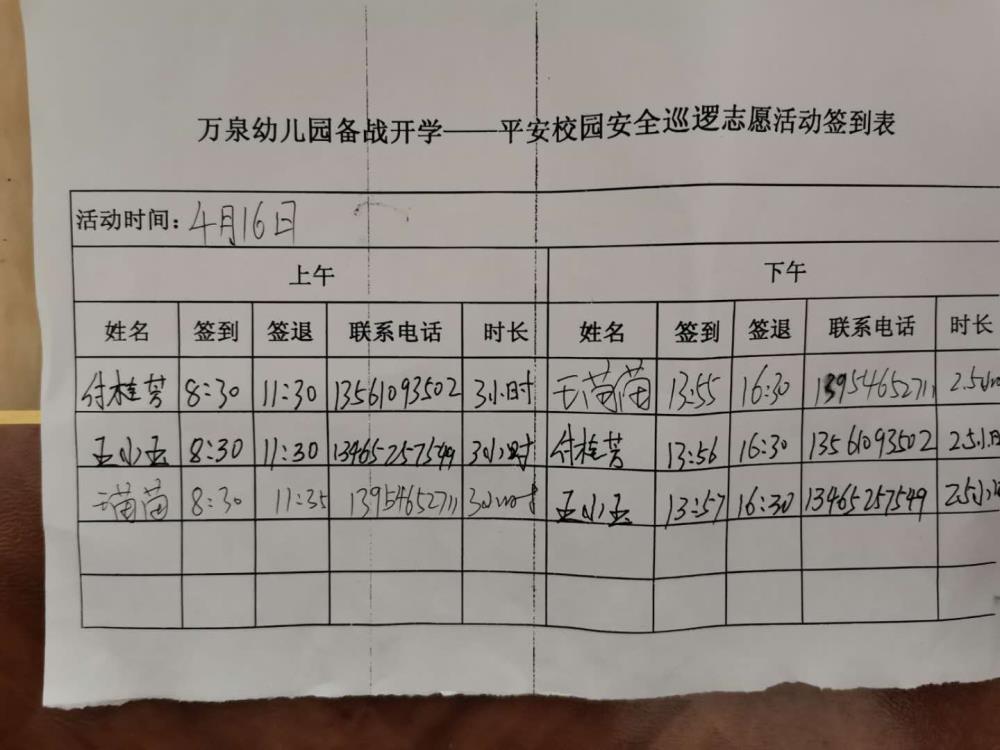 万泉幼儿园备战开学——平安校园安全巡逻志愿活动签到表
活动时间：4月16日
上午 下午
姓名 签到 签退 联系电话 时长 姓名 签到 签退 联系电话 时长
付桂芳 8:30 11:30 13561093502 3小时 王苗苗 13:55 16:30 13954652711 2.5小时
王小玉 8:30 11:30 13465257549 3小时 付桂芳 13:56 16:30 13561093502 2.5小时
王苗苗 8:30 11:35 13954652711 3小时 王小玉 13:57 16:30 13465257549 2.5小时